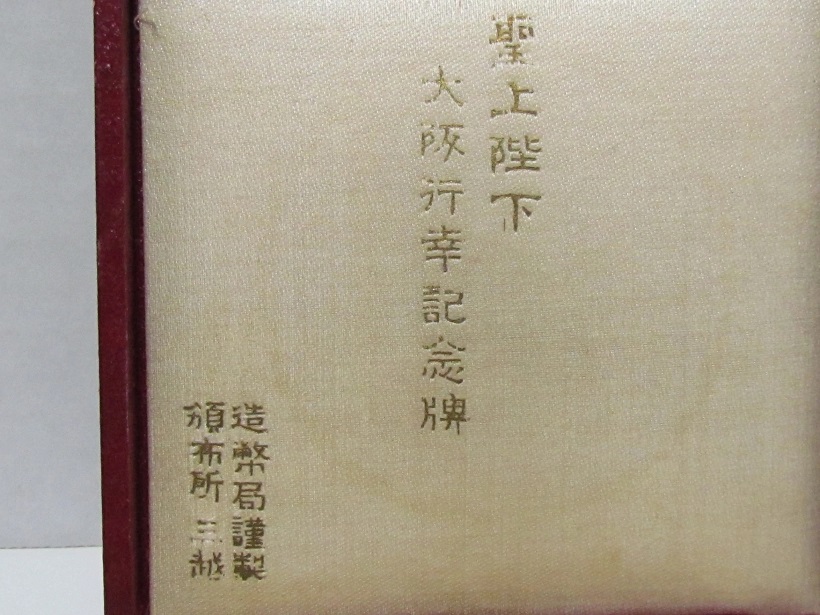 聖上陛下
大阪行幸記念牌
造幣局謹製
頒布所 三越